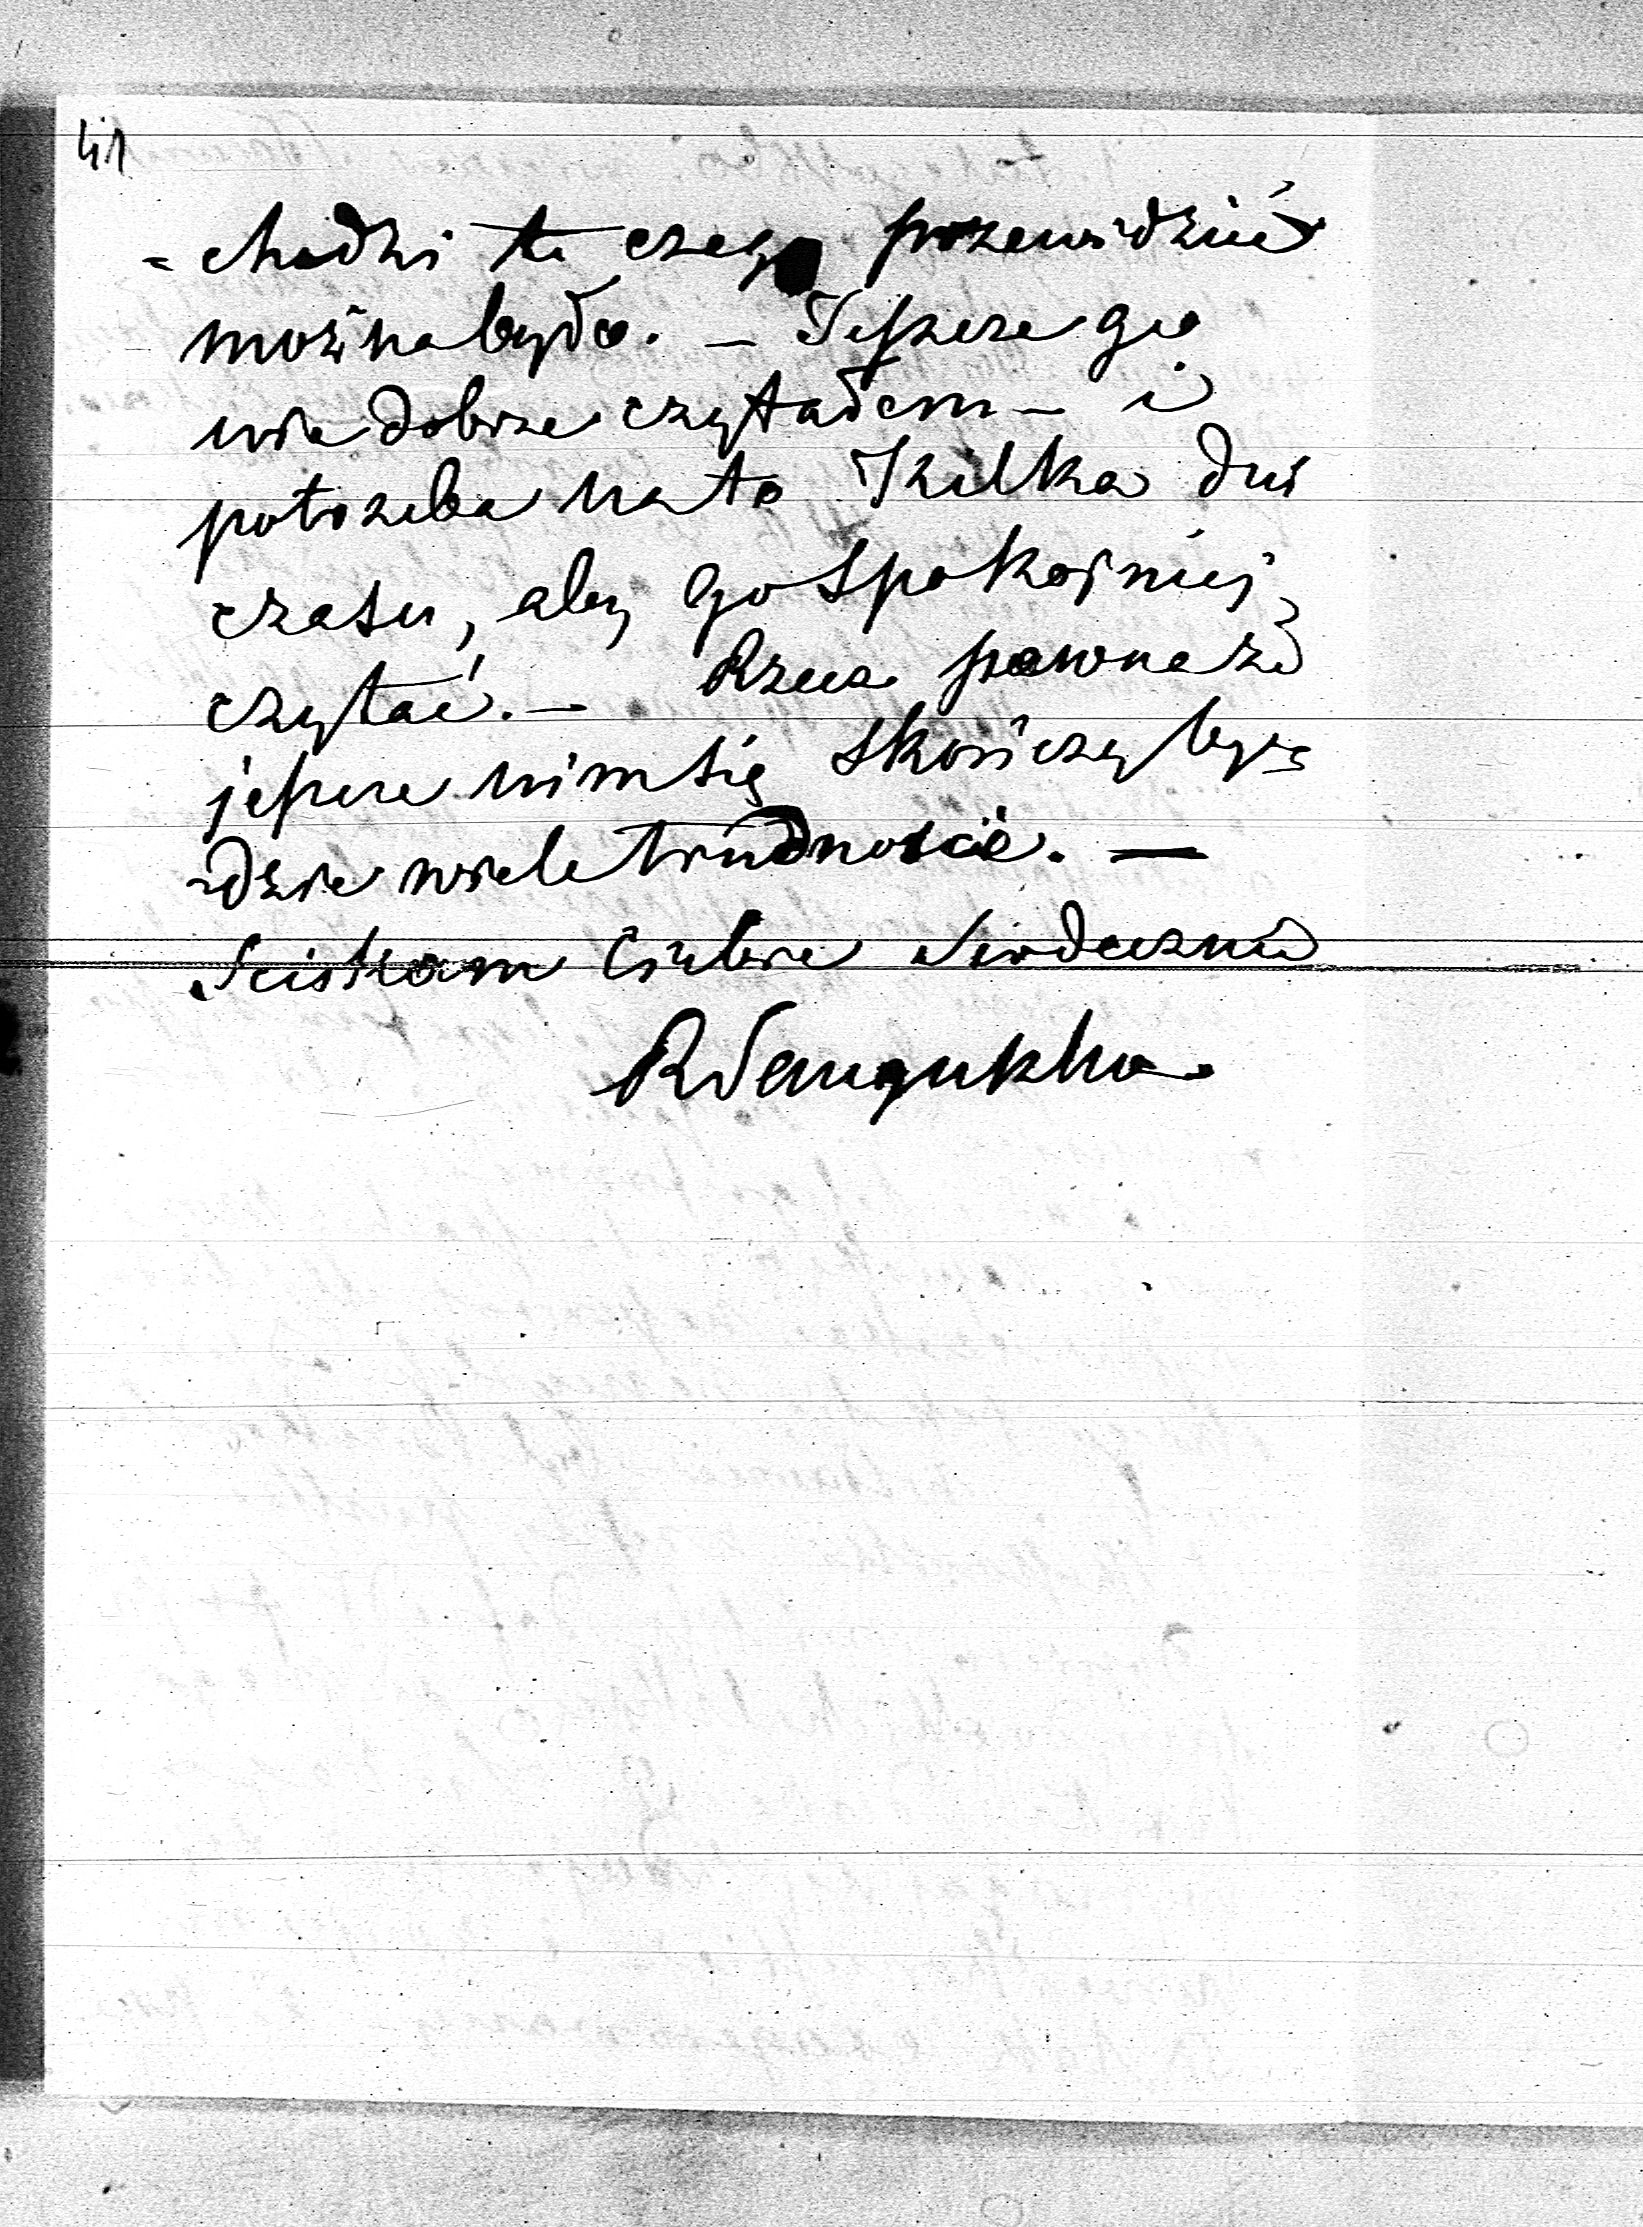 41
-chodzi to czego przewidzieć
można było. – Jeszcze go
nie dobrze czytałem – i
potrzeba na to kilka dni
czasu, aby go spokojniej
czytać. – Rzecz pewna że
jeszcze nim się skończy bę-
-dzie wiele trudności. –
Sciskam Ciebie serdecznie
RSanguszko